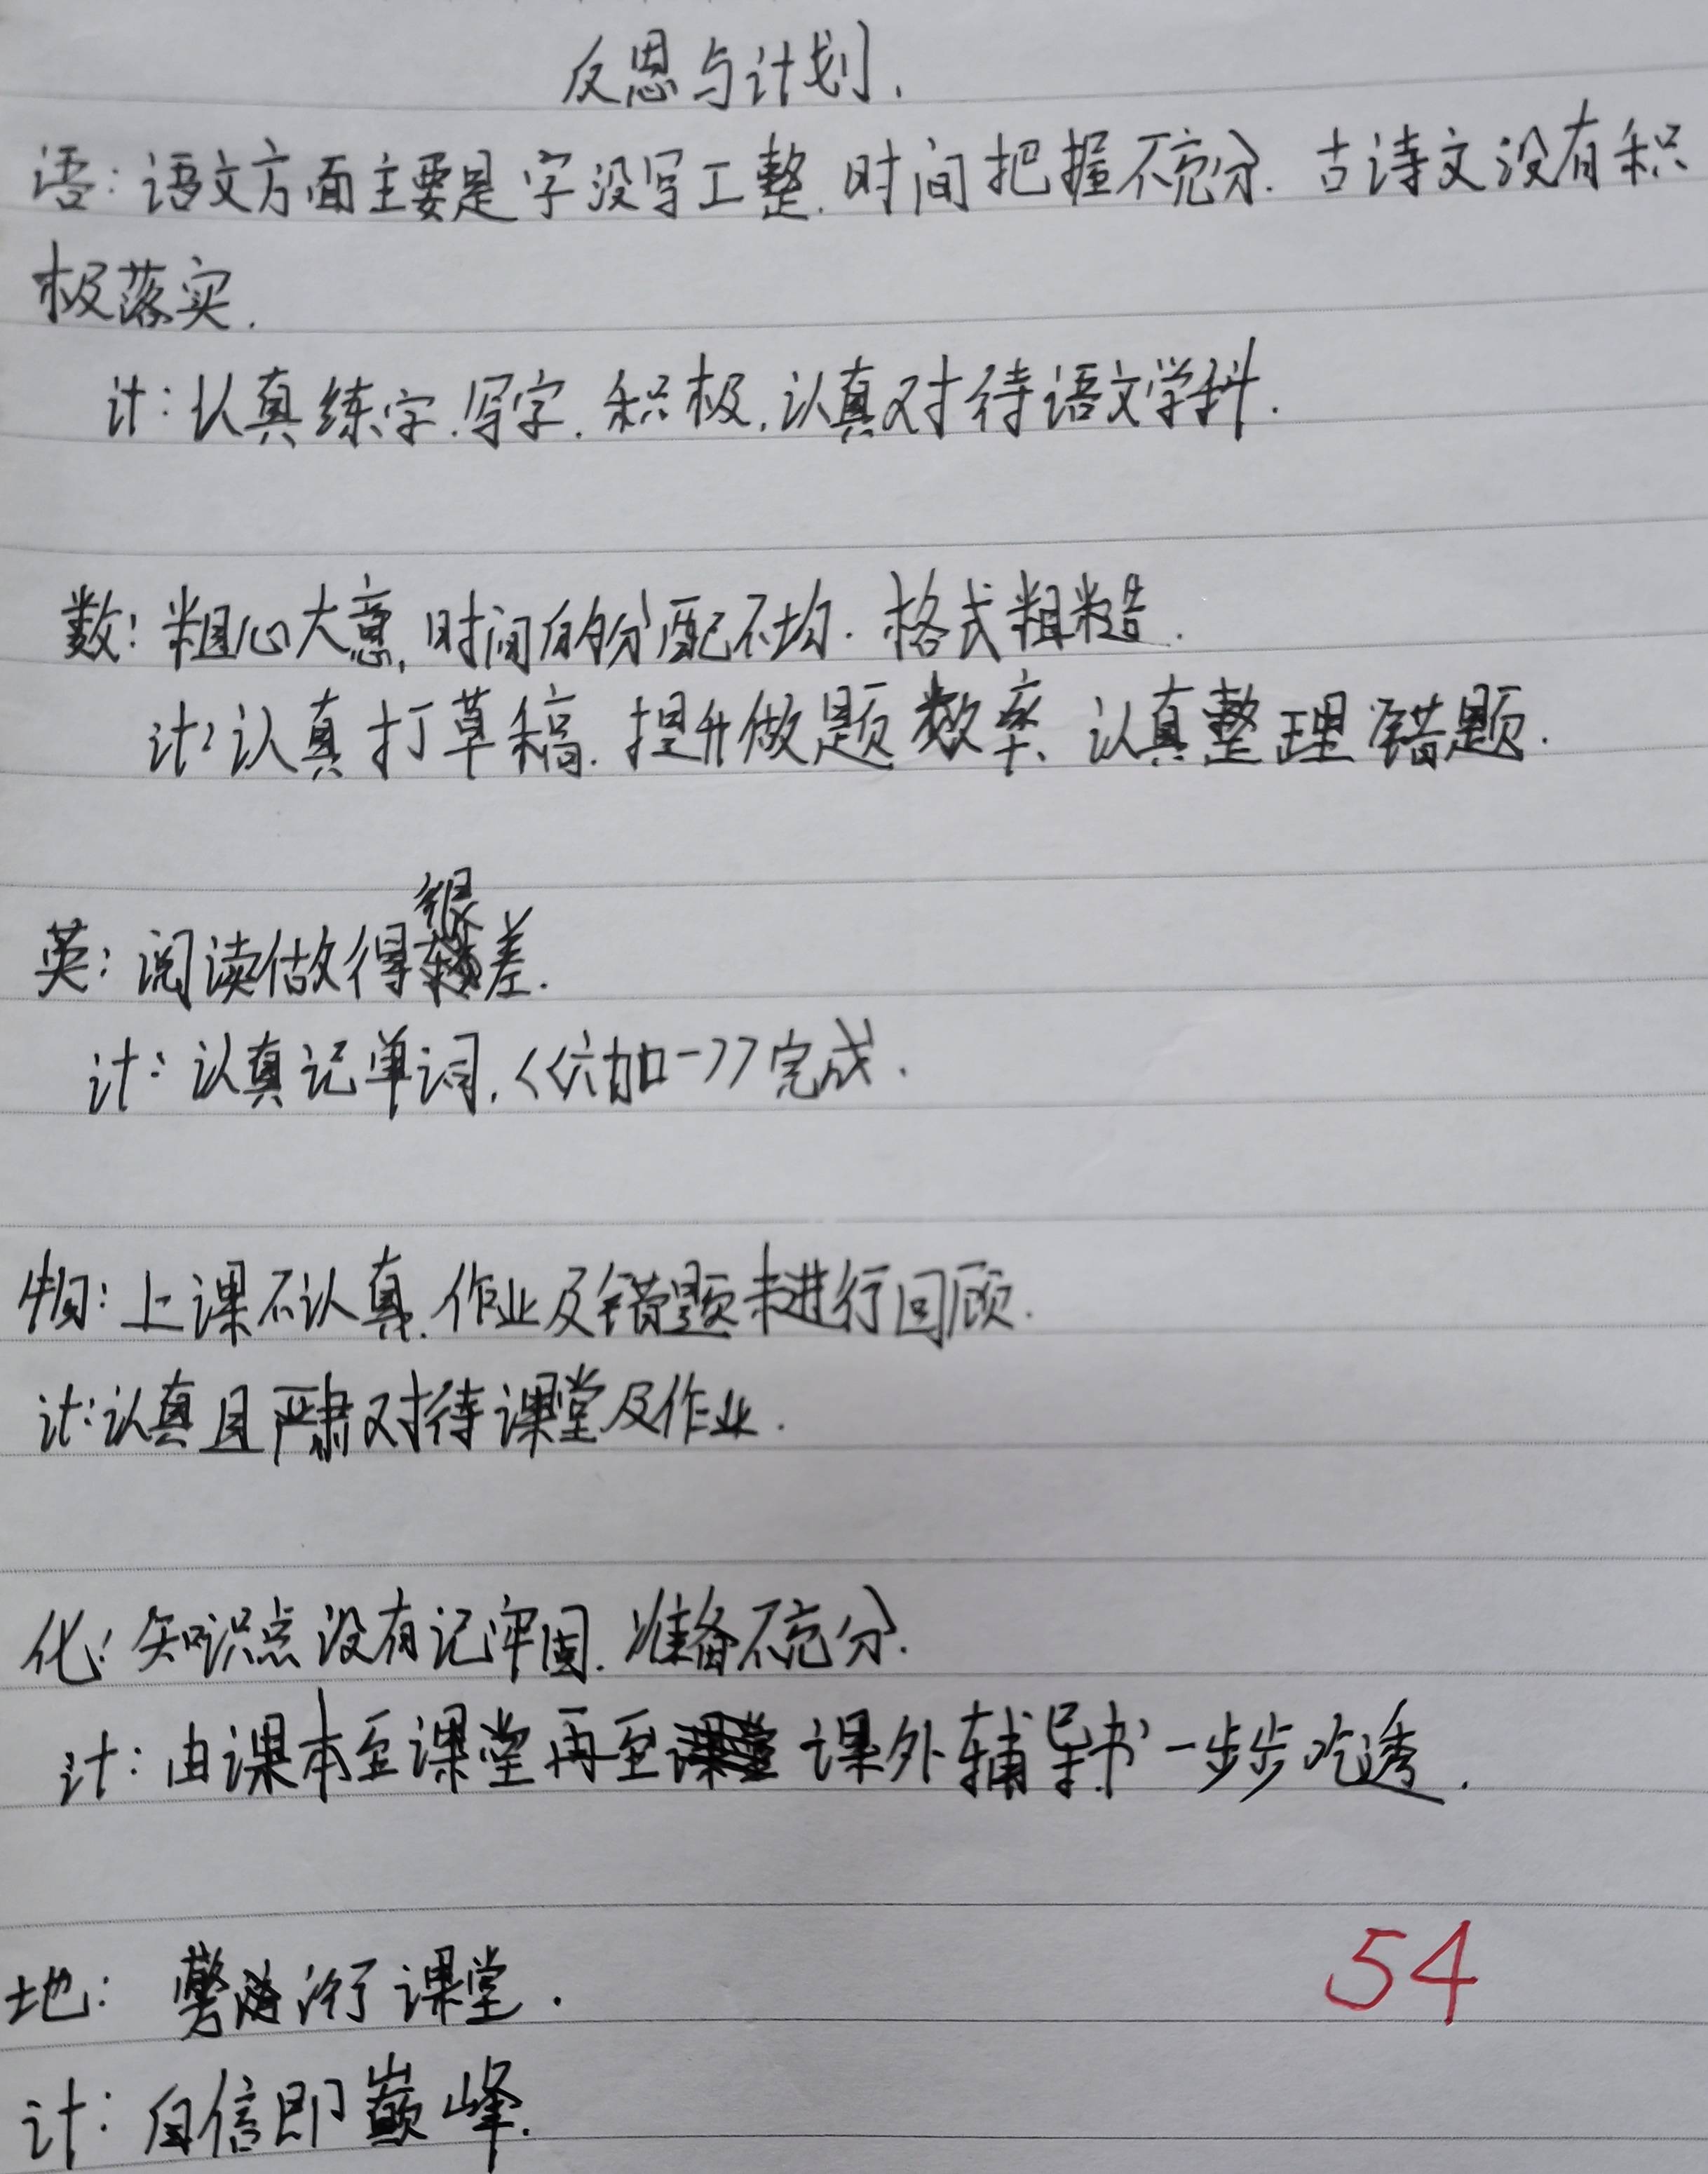 反思与计划.
语:语文方面主要是字没写工整.时间把握不充分.古诗文没有积
极落实.
计:认真练字.写字.积极.认真对待语文学科.
数:粗心大意,时间的分配不均.格式粗糙.
计:认真打草稿.提升做题效率、认真整理错题.
很
英:阅读做得差.
计:认真记单词,<<六加一>>完成.
物:上课不认真.作业及错题未进行回顾.
计:认真且严肃对待课堂及作业.
化:知识点没有记牢固.准备不充分.
计:由课本至课堂再至课外辅导书一步步吃透.
地:课堂.
54
计:自信即巅峰.